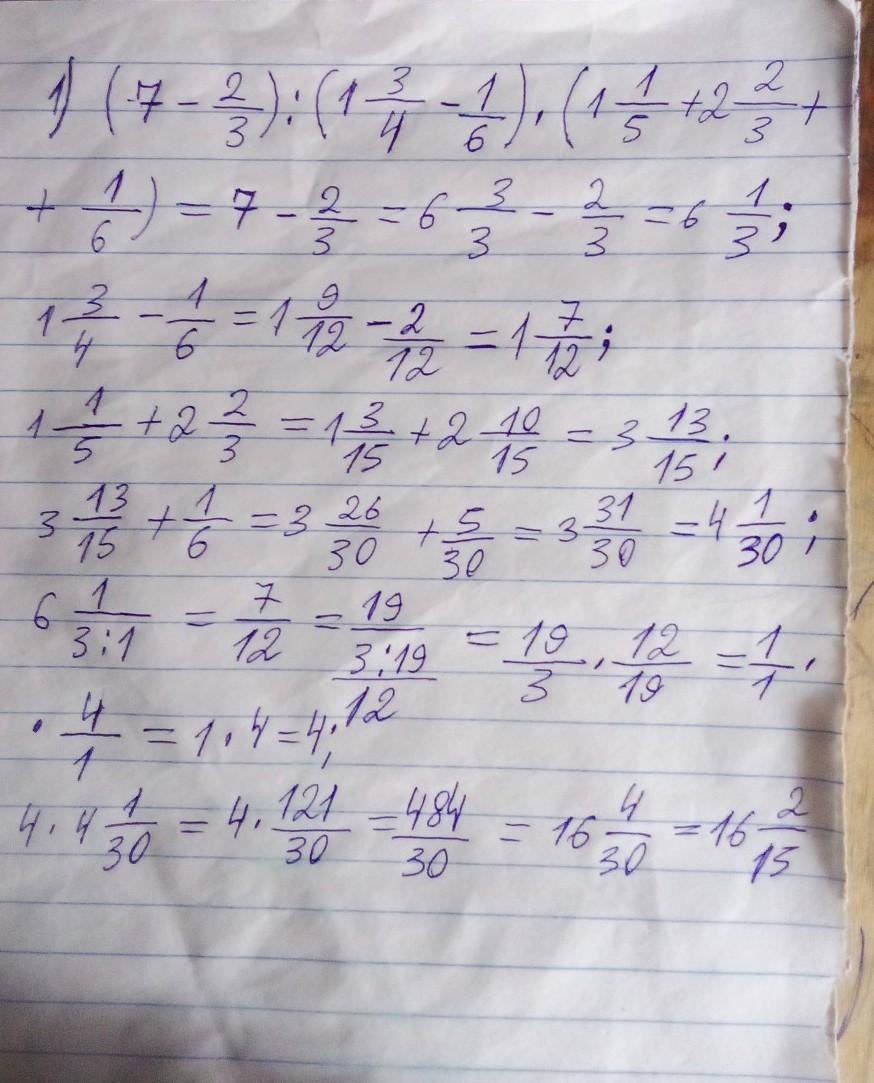 1) (7 - 2/3) : (1 3/4 - 1/6) · (1 1/5 + 2 2/3 +
+ 1/6) = 7 - 2/3 = 6 3/3 - 2/3 = 6 1/3;
1 3/4 - 1/6 = 1 9/12 - 2/12 = 1 7/12;
1 1/5 + 2 2/3 = 1 3/15 + 2 10/15 = 3 13/15;
3 13/15 + 1/6 = 3 26/30 + 5/30 = 3 31/30 = 4 1/30;
6 1/(3:1) = 7/12 = 19/(3:19)/12 = 19/3 · 12/19 = 1/1 ·
· 4/1 = 1 · 4 = 4;
4 · 4 1/30 = 4 · 121/30 = 484/30 = 16 4/30 = 16 2/15